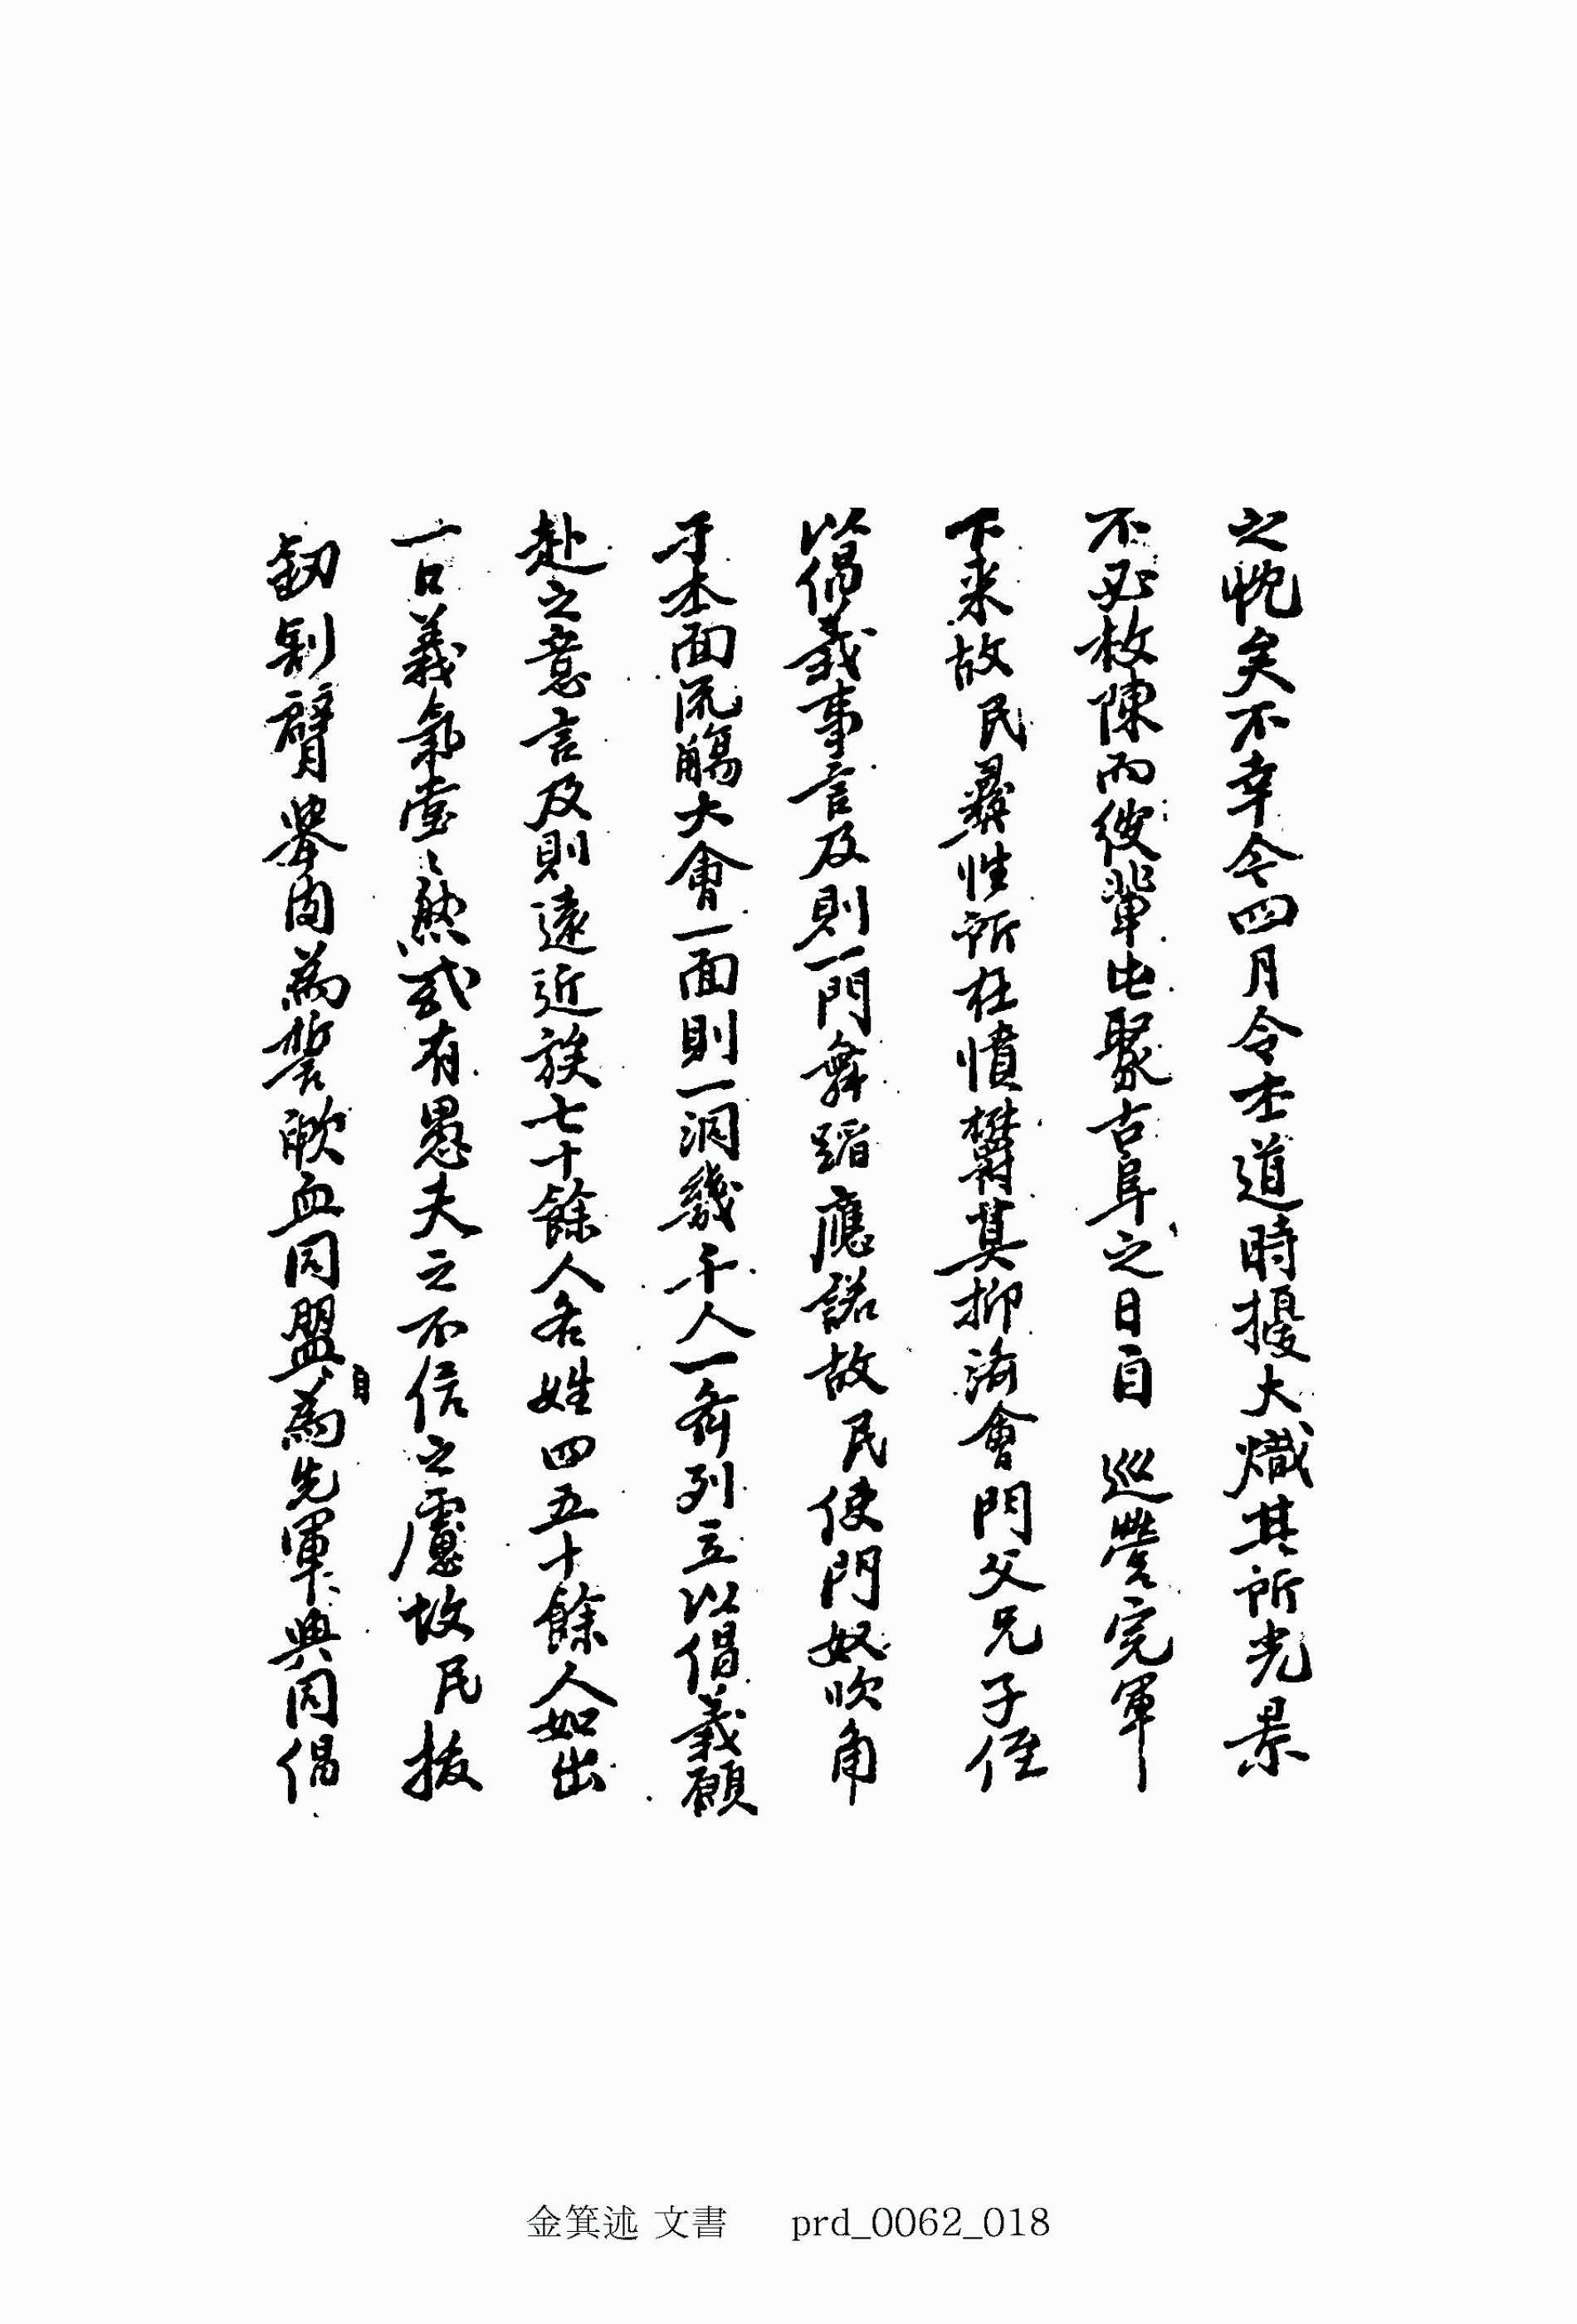 之忱矣不幸今四月令本道時擾大熾其所光景
不必枚陳而彼輩屯聚古阜之日自 巡營完軍
下來故民彛性所在憤欝莫抑渝會門父兄子侄
以倡義事言及則一門舞蹈應諾故民使門奴吹角
于本面流觴大會一面則一洞幾千人一齊列立以倡義願
赴之意言及則遠近族七十餘人各姓四五十餘人如出
一口義氣堂〻然或有愚夫之不信之慮故民拔
釼割臂擧肉為誓歃血同盟自為先軍與同倡
金箕述 文書 prd_0062_018